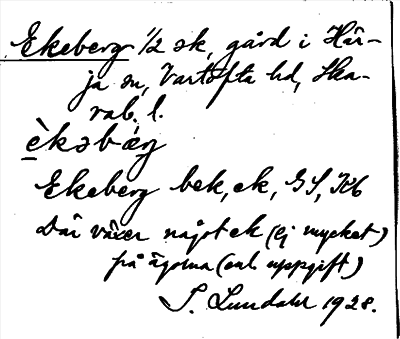 Ekeberg 1/2 sk, gård i Hår-
ja sn, Vartofta hd, Ska-
rab. l.
èkəbærj
Ekeberg bek, ek, GS, Kb
Där växer något ek (ej mycket)
på ägorna (enl. uppgift)
S. Lundahl 1928.